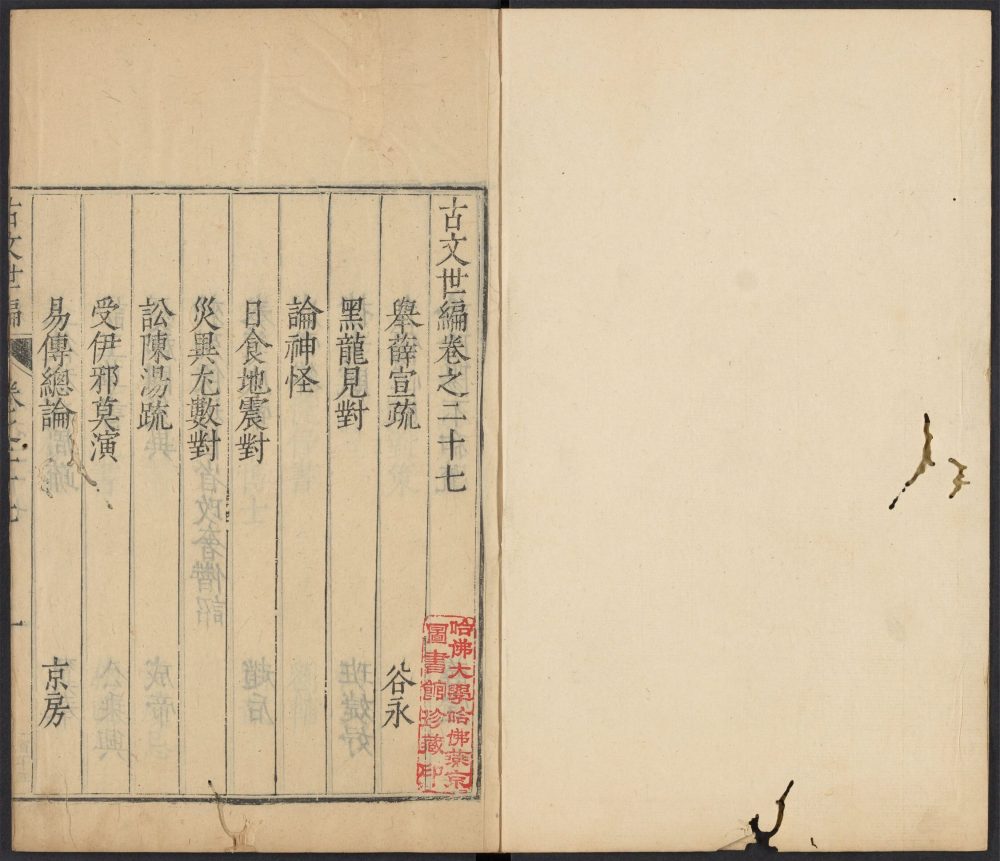 古文世編卷之二十七
舉薛宣疏 谷永
黑龍見對
論神怪
日食地震對
災異尢數對
訟陳湯疏
受伊邪莫演
易傳總論 京房
古文世編 卷之二十七 一
哈佛大學哈佛燕京
圖書館珍藏印